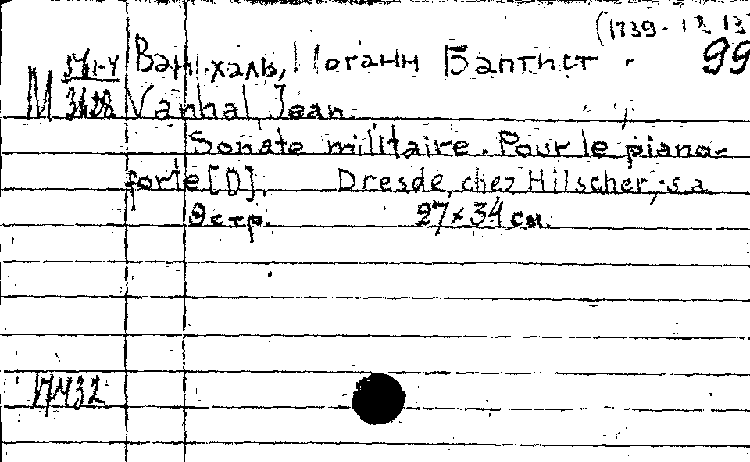 (1739-1813)
Ванхаль, Иоганн Баптист 99
М 3628 Vanhal, Jean.
Sonate militaire. Pour le piano-
forte [D]. Dresde, chez Hilscher, s.a.
9 стр. 27 × 34 см.